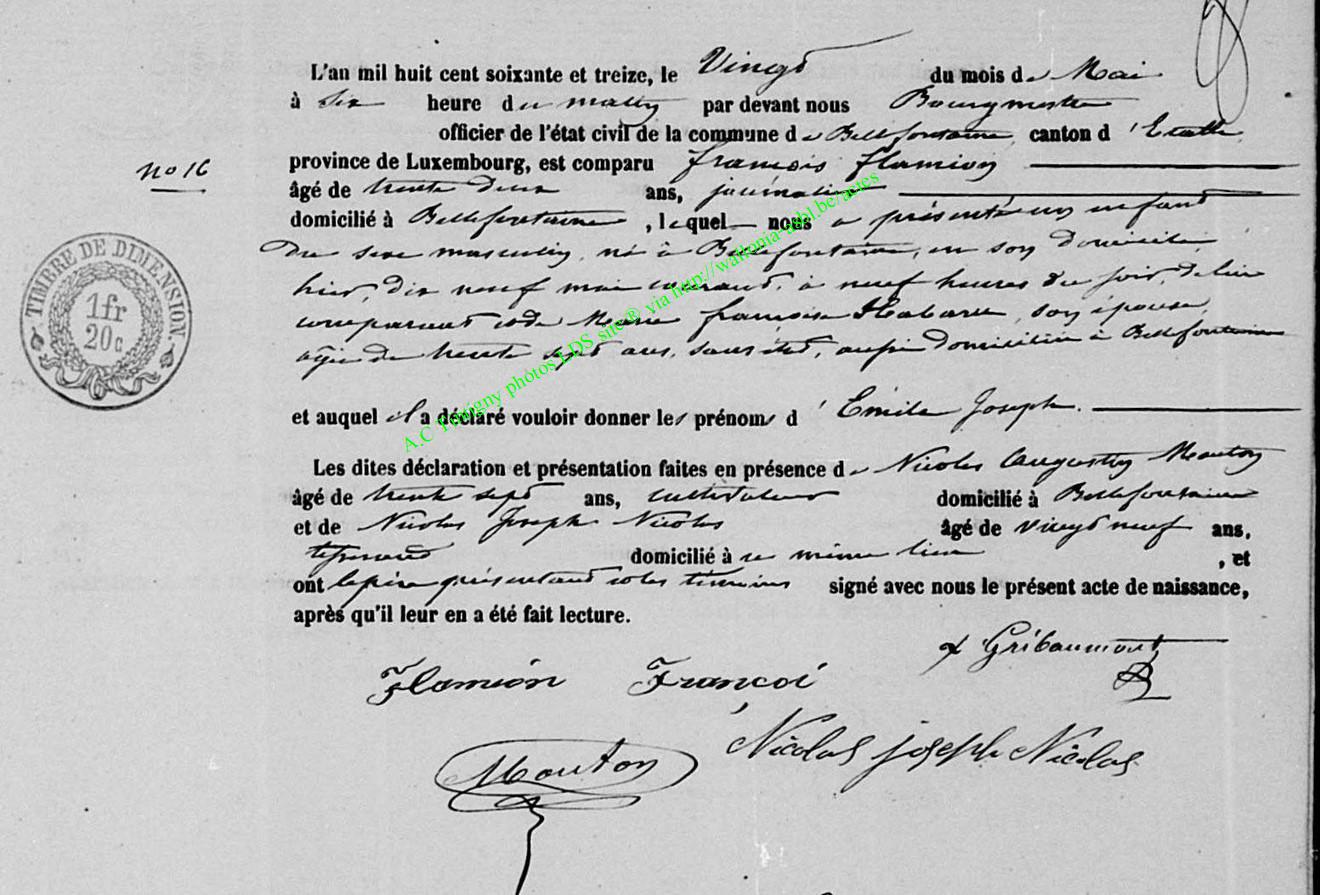 L'an mil huit cent soixante et treize, le Vingt du mois de Mai
à six heure du matin par devant nous Bourgmestre
officier de l'état civil de la commune de Bellefontaine, canton d'Etalle
no 16
province de Luxembourg, est comparu François Flamion
âgé de trente deux ans, journalier
domicilié à Bellefontaine, lequel nous a présenté un enfant
du sexe masculin, né à Bellefontaine, en son domicile,
hier, dix neuf mai courant, à neuf heures du soir, de lui
comparant et de Marie françoise Habaru, son épouse,
âgée de trente sept ans, sans état, aussi domiciliée à Bellefontaine
et auquel il a déclaré vouloir donner les prénoms d'Emile Joseph.
Les dites déclaration et présentation faites en présence de Nicolas Augustin Mouton
âgé de trente sept ans, cultivateur domicilié à Bellefontaine
et de Nicolas Joseph Nicolas âgé de vingt neuf ans,
tisserand domicilié à ce même lieu, et
ont le père présentant et les témoins signé avec nous le présent acte de naissance,
après qu'il leur en a été fait lecture.
Gribaumont
Flamion Françoi
Nicolas joseph Nicolas
Mouton
TIMBRE DE DIMENSION.
1fr
20c
A.C Tintigny photos LDS site® via http://wallonia-asbl.be/actes